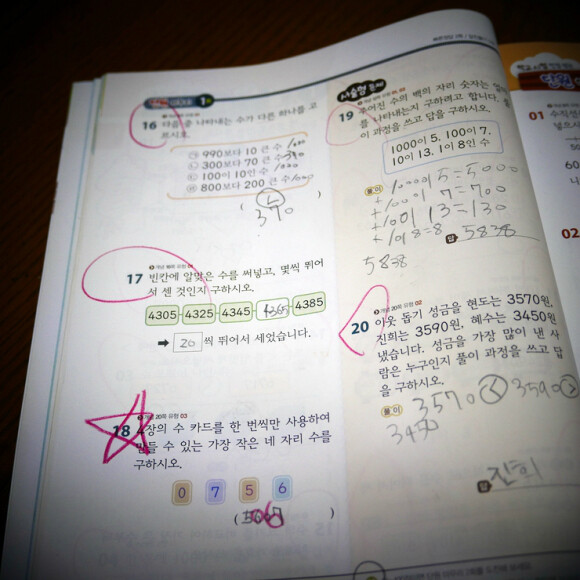 16 다음 중 나타내는 수가 다른 하나를 고
르시오.
㉠ 990보다 10 큰 수
㉡ 300보다 70 큰 수
㉢ 100이 10인 수
㉣ 800보다 200 큰 수
( ㄴ )
370
개념 18쪽 유형 04
17 빈칸에 알맞은 수를 써넣고, 몇씩 뛰어
서 센 것인지 구하시오.
4305 4325 4345 4365 4385
➡ 20 씩 뛰어서 세었습니다.
개념 20쪽 유형 03
18 4장의 수 카드를 한 번씩만 사용하여
만들 수 있는 가장 작은 네 자리 수를
구하시오.
0 7 5 6
( )
서술형 문제
19 주어진 수의 백의 자리 숫자는
를 나타내는지 구하려고 합니다.
이 과정을 쓰고 답을 구하시오.
1000이 5, 100이 7,
10이 13, 1이 8인 수
풀이
1000이 5=5000
+100이 7=700
+10이 13=130
+1이 8=8
답 5838
5838
개념 20쪽 유형 02
20 이웃 돕기 성금을 현도는 3570원,
진희는 3590원, 혜수는 3450원
냈습니다. 성금을 가장 많이 낸 사
람은 누구인지 풀이 과정을 쓰고 답
을 구하시오.
풀이 3570 < 3590 >
3450
답 진희
단원
01 수직선
넣으시
02